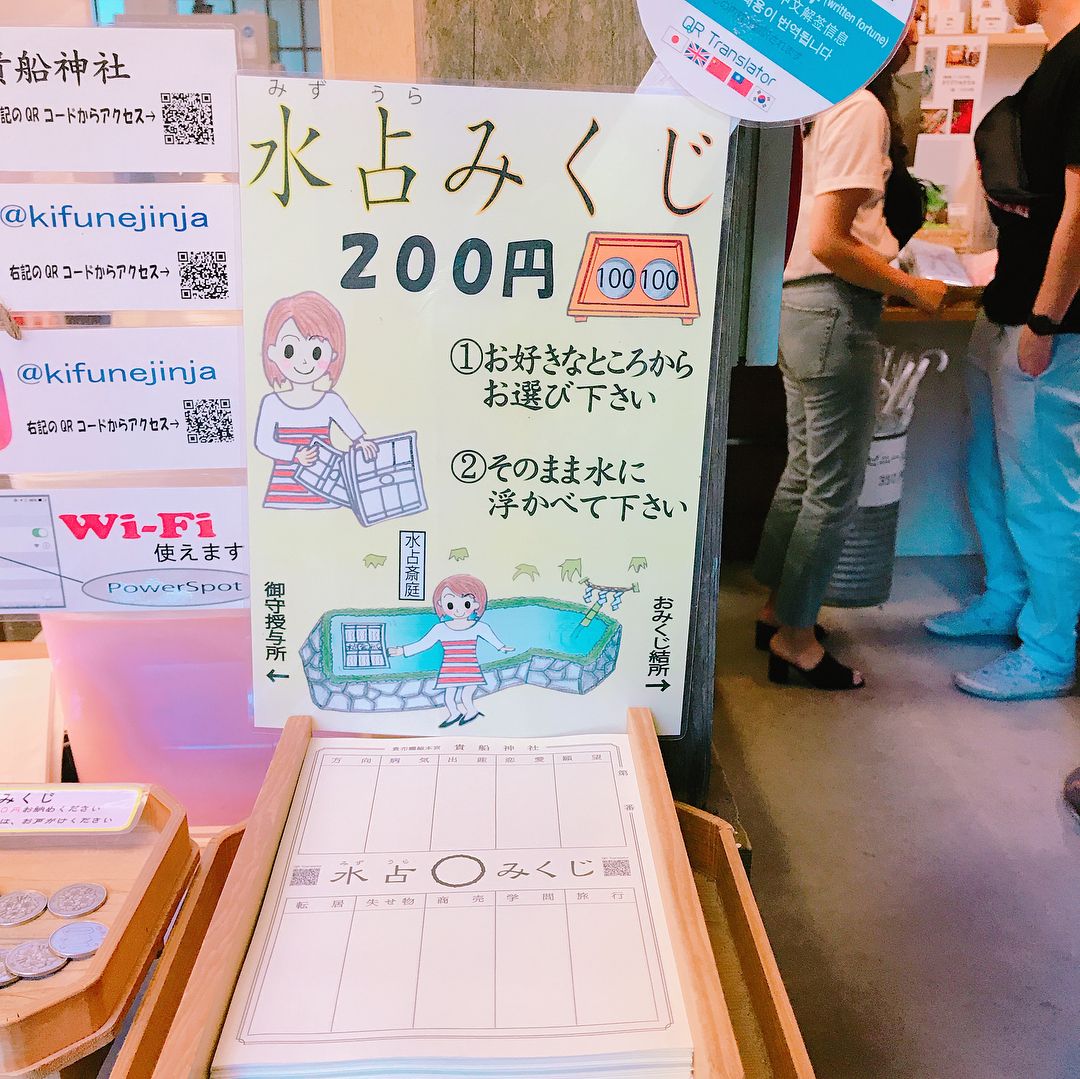 貴船神社
記のQRコードからアクセス→
@kifunejinja
右記のQRコードからアクセス→
@kifunejinja
右記のQRコードからアクセス→
Wi-Fi
使えます
PowerSpot
(written fortune)
中文解签信息
번역됩니다
QR Translator
みず うら
水占みくじ
200円
100 100
①お好きなところから
お選び下さい
②そのまま水に
浮かべて下さい
水占斎庭
御守授与所
←
おみくじ結所
→
みくじ
お納めください
は、お声がけください
貴船神社
方向 病気 出産 恋愛 願望
第 番
みず うら
水占〇みくじ
転居 失せ物 商売 学問 旅行